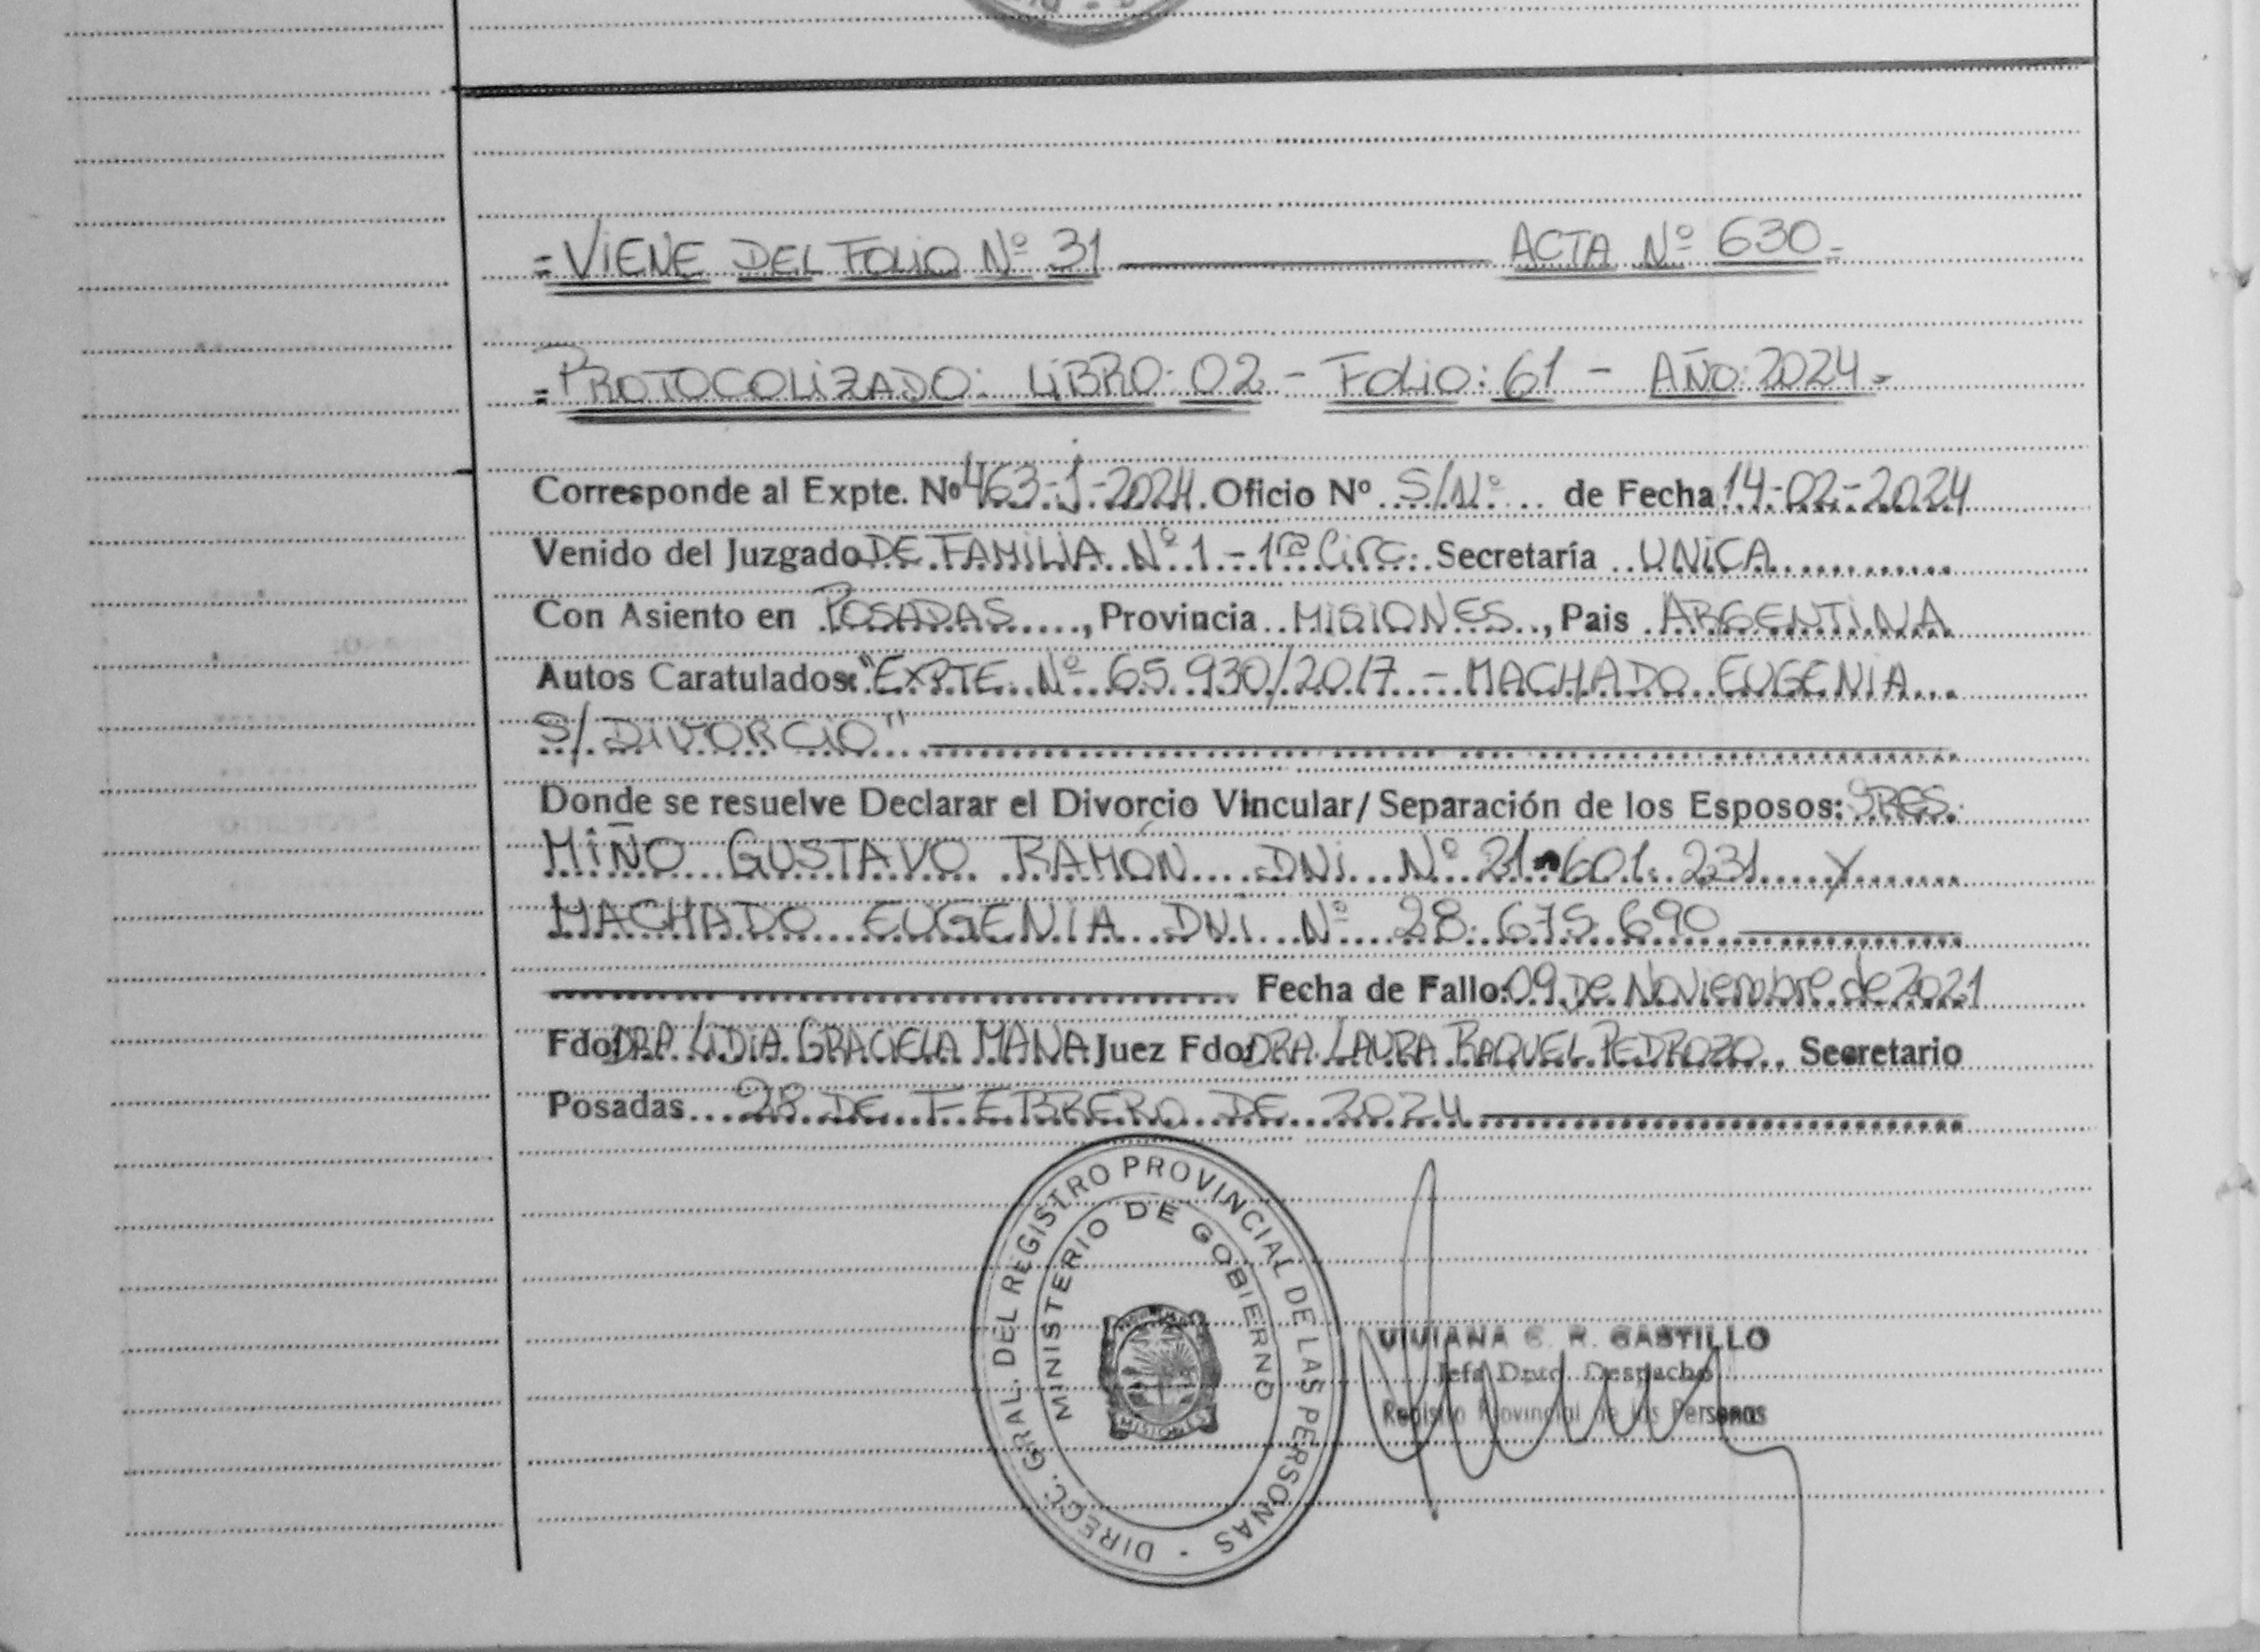 =VIENE DEL FOLIO Nº 31 ACTA Nº 630=
=PROTOCOLIZADO: LIBRO: 02 - FOLIO: 61 - AÑO: 2024=
Corresponde al Expte. Nº 463-J-2024. Oficio Nº S/Nº de Fecha 14-02-2024
Venido del Juzgado DE FAMILIA Nº 1 - 1ra Circ. Secretaría UNICA
Con Asiento en POSADAS, Provincia MISIONES, Pais ARGENTINA
Autos Caratulados: "EXPTE. Nº 65.930/2017 - MACHADO EUGENIA
S/ DIVORCIO"
Donde se resuelve Declarar el Divorcio Vincular/ Separación de los Esposos: SRES.
MIÑO GUSTAVO RAMÓN DNI Nº 21.601.231 Y
MACHADO EUGENIA DNI Nº 28.675.690
Fecha de Fallo: 09 De Noviembre de 2021
Fdo: DRA. LIDIA GRACIELA MANA Juez Fdo: DRA. LAURA RAQUEL PEDROZO. Secretario
Posadas 28 DE FEBRERO DE 2024
DIRECC. GRAL. DEL REGISTRO PROVINCIAL DE LAS PERSONAS
MINISTERIO DE GOBIERNO
MISIONES
VIVIANA G. R. GASTILLO
Jefa Dpto. Despacho
Registro Provincial de las Personas